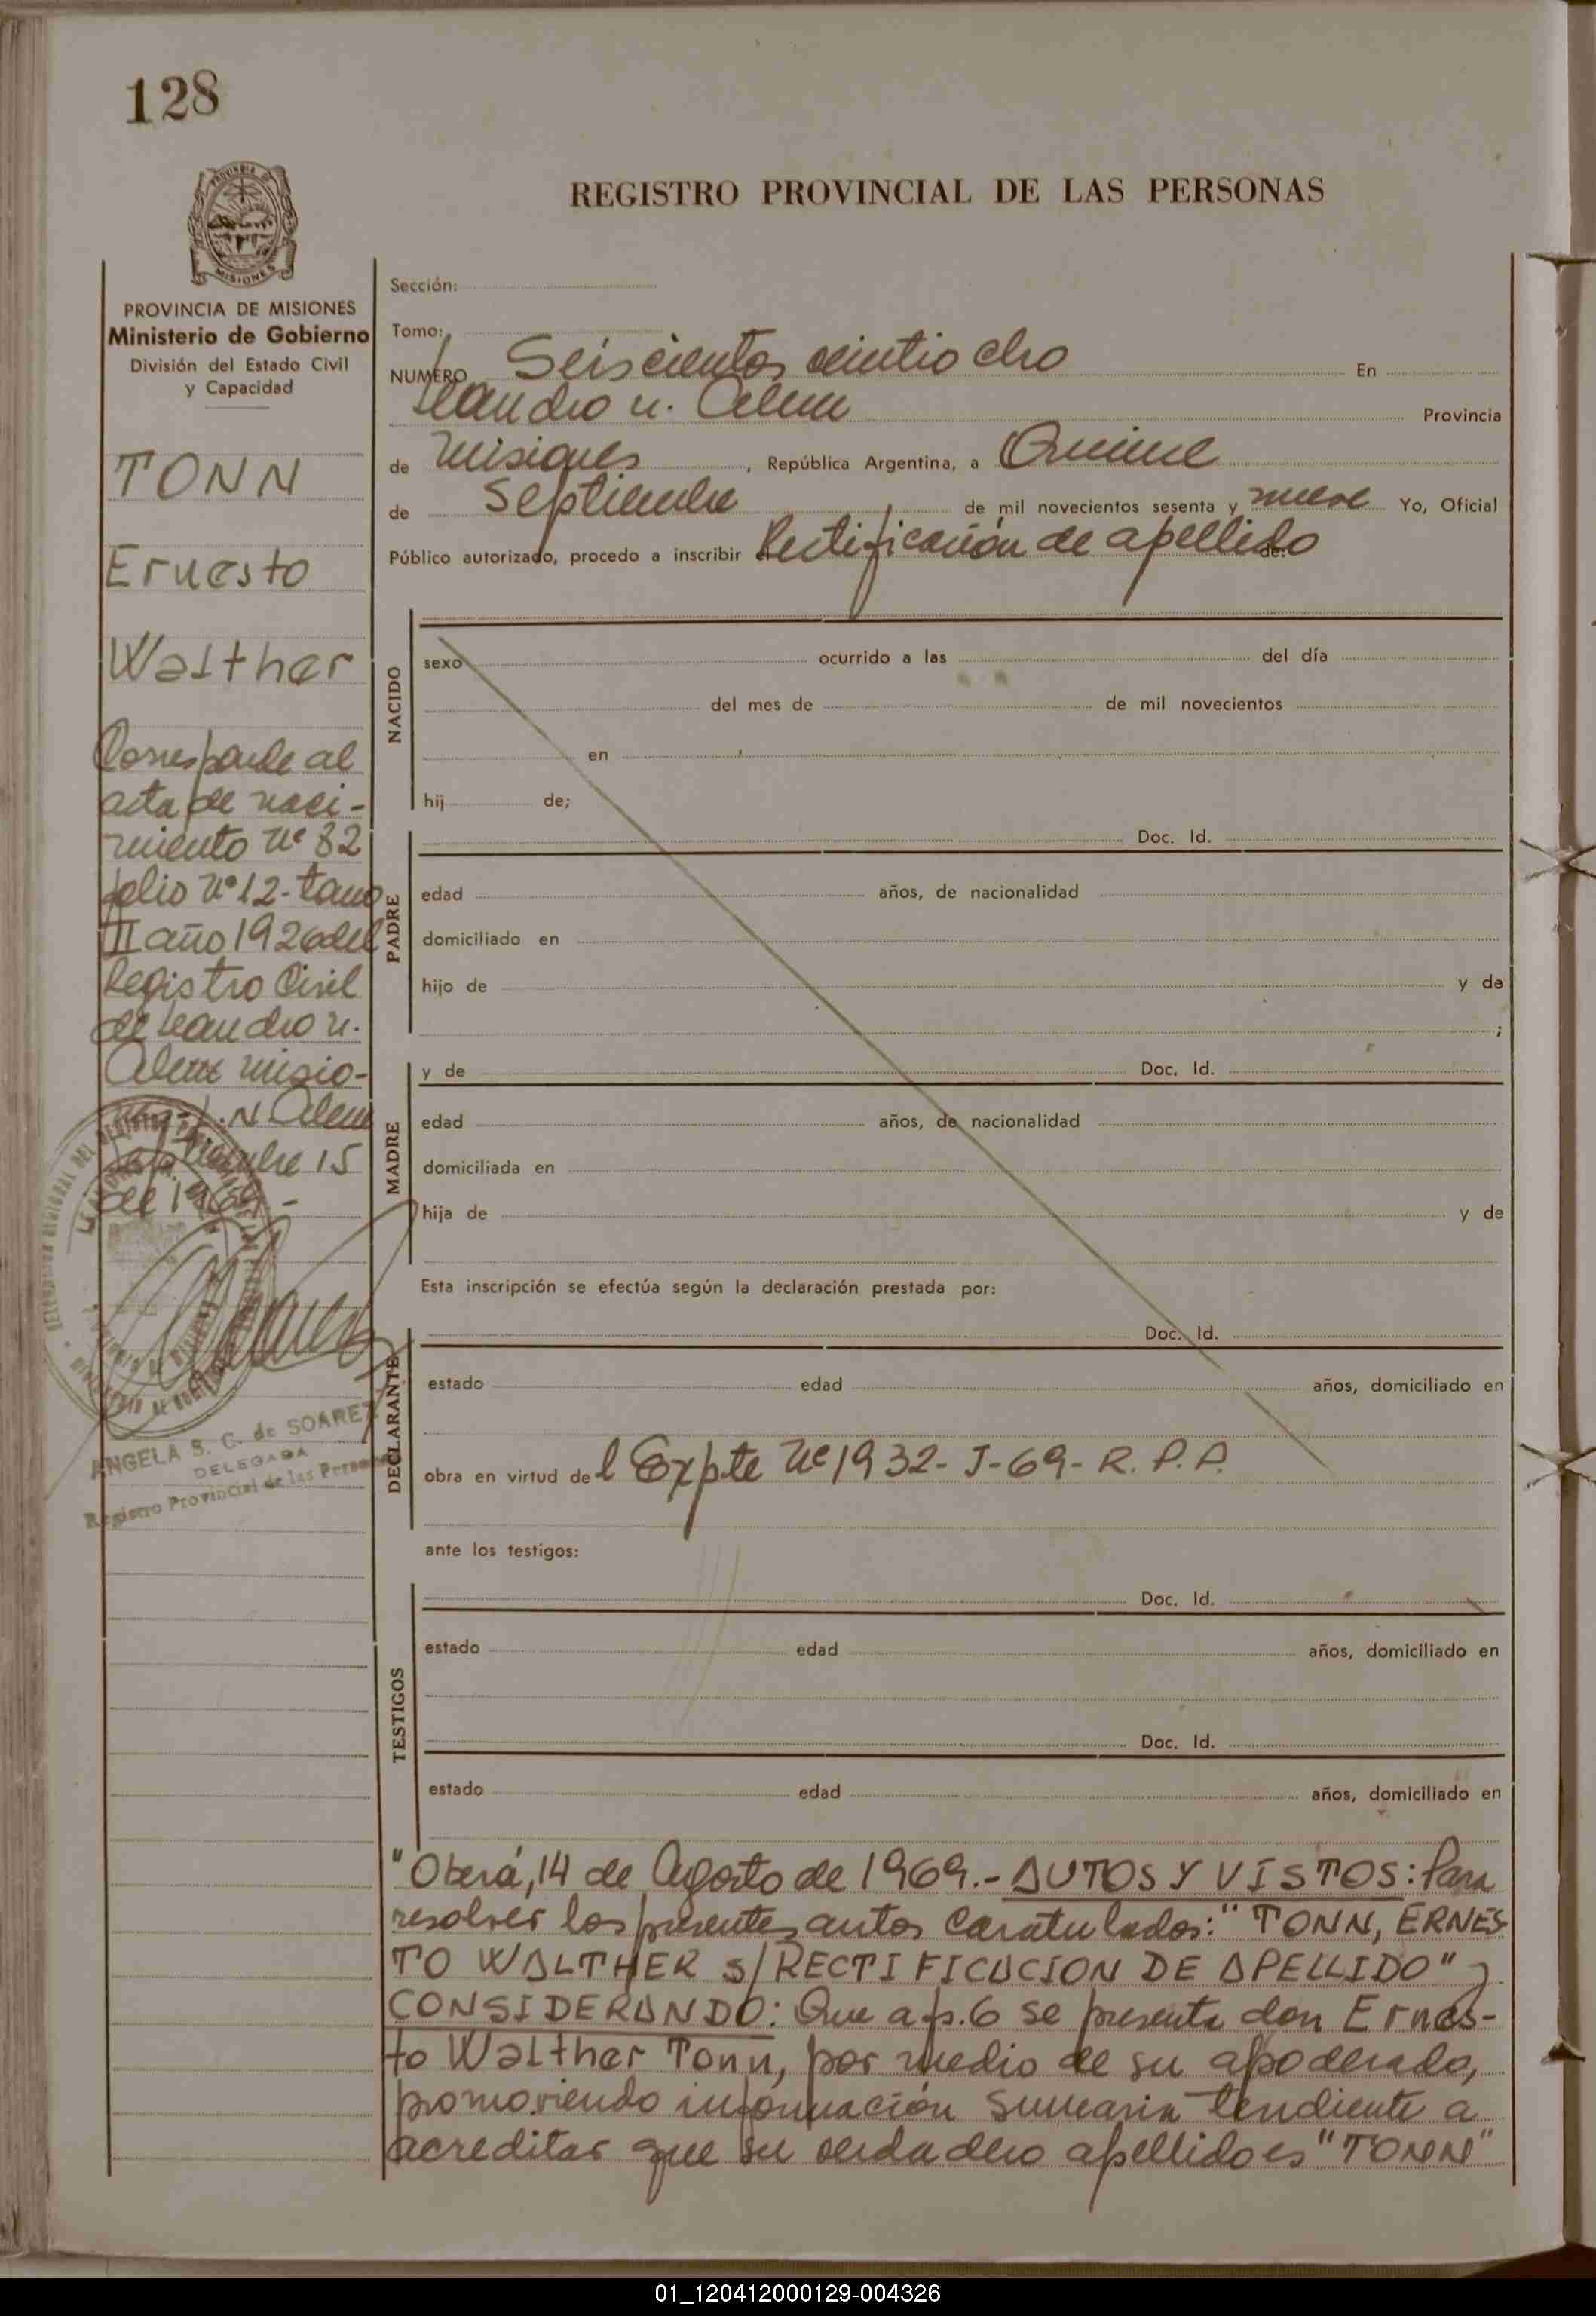 128
PROVINCIA DE
MISIONES
REGISTRO PROVINCIAL DE LAS PERSONAS
PROVINCIA DE MISIONES
Ministerio de Gobierno
División del Estado Civil
y Capacidad
TONN
Ernesto
Walther
Corresponde al
acta de naci-
miento Nº 32
folio Nº 12 - tomo
II año 1926 del
Registro Civil
de Leandro N.
Alem Misio-
nes - L. N. Alem
Septiembre 15
de 1969 -
ANGELA S. C. de SOAREZ
DELEGADA
Registro Provincial de las Personas
Sección:
Tomo:
NUMERO Seiscientos veintiocho En
Leandro N. Alem Provincia
de Misiones, República Argentina, a Quince
de Septiembre de mil novecientos sesenta y nueve Yo, Oficial
Público autorizado, procedo a inscribir Rectificación de apellido de:
NACIDO
sexo ocurrido a las del día
del mes de de mil novecientos
en
hij de;
Doc. Id.
PADRE
edad años, de nacionalidad
domiciliado en
hijo de y de
;
MADRE
y de Doc. Id.
edad años, de nacionalidad
domiciliada en
hija de y de
Esta inscripción se efectúa según la declaración prestada por:
Doc. Id.
DECLARANTE
estado edad años, domiciliado en
obra en virtud del Expte Nº 1932-J-69-R.P.P.
ante los testigos:
Doc. Id.
TESTIGOS
estado edad años, domiciliado en
Doc. Id.
estado edad años, domiciliado en
"Oberá, 14 de Agosto de 1969.- AUTOS Y VISTOS: Para
resolver los presentes autos caratulados: "TONN, ERNES
TO WALTHER S/RECTIFICACION DE APELLIDO" y
CONSIDERANDO: Que a fs. 6 se presenta don Ernes-
to Walther Tonn, por medio de su apoderado,
promoviendo información sumaria tendiente a
acreditar que su verdadero apellido es "TONN"
01_120412000129-004326